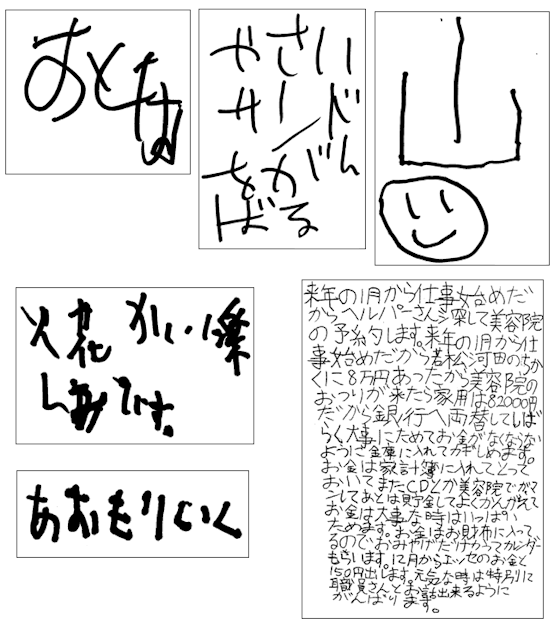 おとな
やさい
サード
をがん
ばる
山
火花
しみです。
あおもりいく
来年の1月から仕事始めだ
からヘルパーさん探して美容院
の予約します。来年の1月から仕
事始めだから若松河田のちか
くに8万円あったから美容院の
おつりが来たら家用は82000円
だから銀行へ両替してしば
らく大事にためてお金がなくならな
ように金庫に入れてカギしめます。
お金は家計簿に入れてとって
おいてまたCDとか美容院でガマ
ンしてあとは貯金してよくかんがえて
お金は大事な時はいっぱい
ためます。お金はお財布に入って
るのでおみやげだけかってカレンダー
もらいます。12月からエッセのお金と
150円出します。元気な時は特別に
職員さんとお話出来るように
がんばります。